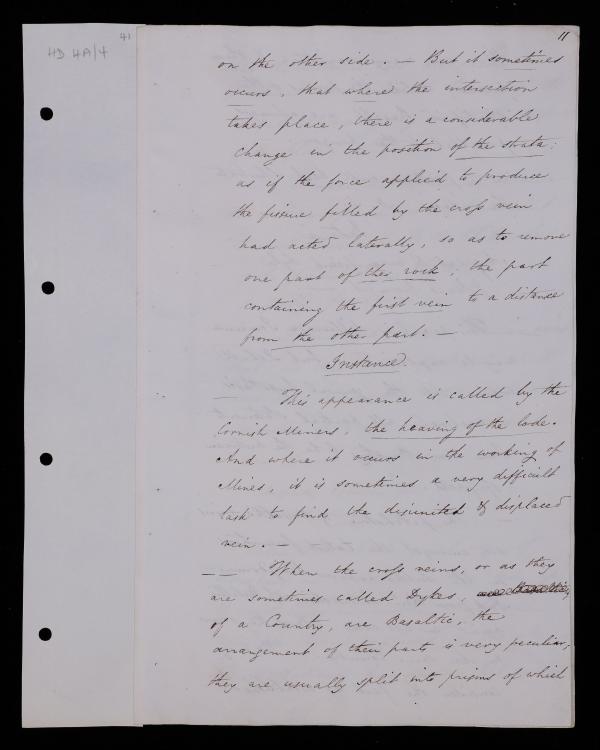 41
HD 4A/4
11
on the other side. — But it sometimes
occurs, that where the intersection
takes place, there is a considerable
change in the position of the strata:
as if the force applied to produce
the fissure filled by the cross vein
had acted laterally, so as to remove
one part of the rock, the part
containing the first vein to a distance
from the other part. —
Instance.
— This appearance is called by the
Cornish Miners, the heaving of the lode.
And where it occurs in the working of
Mines, it is sometimes a very difficult
task to find the disjunited & displaced
vein. —
— — When the cross veins, or as they
are sometimes called Dykes, are Basaltic,
of a Country, are Basaltic, the
arrangement of their parts is very peculiar,
they are usually split into prisms of which